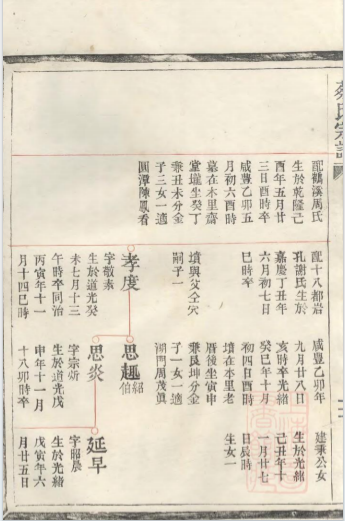 配鶴溪周氏
生於乾隆己
酉年五月廿
三日酉時卒
咸豐乙卯五
月初六酉時
墓在本里齋
堂壠坐癸丁
兼丑未分金
子三女一適
圓潭陳鳳看
配十八都岩
孔謝氏生於
嘉慶丁丑年
六月初七日
巳時卒
墳與父仝穴
嗣子一
孝度
字敬素
生於道光癸
未七月十三
午時卒同治
丙寅年十一
月十四巳時
咸豐乙卯年
九月廿八日
亥時卒光緒
癸巳年十月
初四日酉時
墳在本里老
厝後坐寅申
兼艮坤分金
子一女一適
湖門周茂眞
思趣 紹伯
思炎
字宗炘
生於道光戊
申年十一月
十八卯時卒
建秉公女
生於光緒
己丑年十
一月廿七
日辰時
生女一
延早
字昭晨
生於光緒
戊寅年六
月廿五日